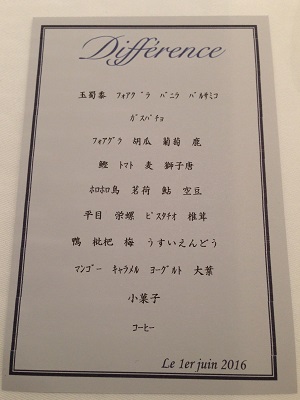 Différence
玉蜀黍 ﾌｫｱｸﾞﾗ ﾊﾞﾆﾗ ﾊﾞﾙｻﾐｺ
ｶﾞｽﾊﾟﾁｮ
ﾌｫｱｸﾞﾗ 胡瓜 葡萄 鹿
鰹 ﾄﾏﾄ 麦 獅子唐
ﾎﾛﾎﾛ鳥 茗荷 鮎 空豆
平目 栄螺 ﾋﾟｽﾀﾁｵ 椎茸
鴨 枇杷 梅 うすいえんどう
ﾏﾝｺﾞｰ ｷｬﾗﾒﾙ ﾖｰｸﾞﾙﾄ 大葉
小菓子
ｺｰﾋｰ
Le 1er juin 2016